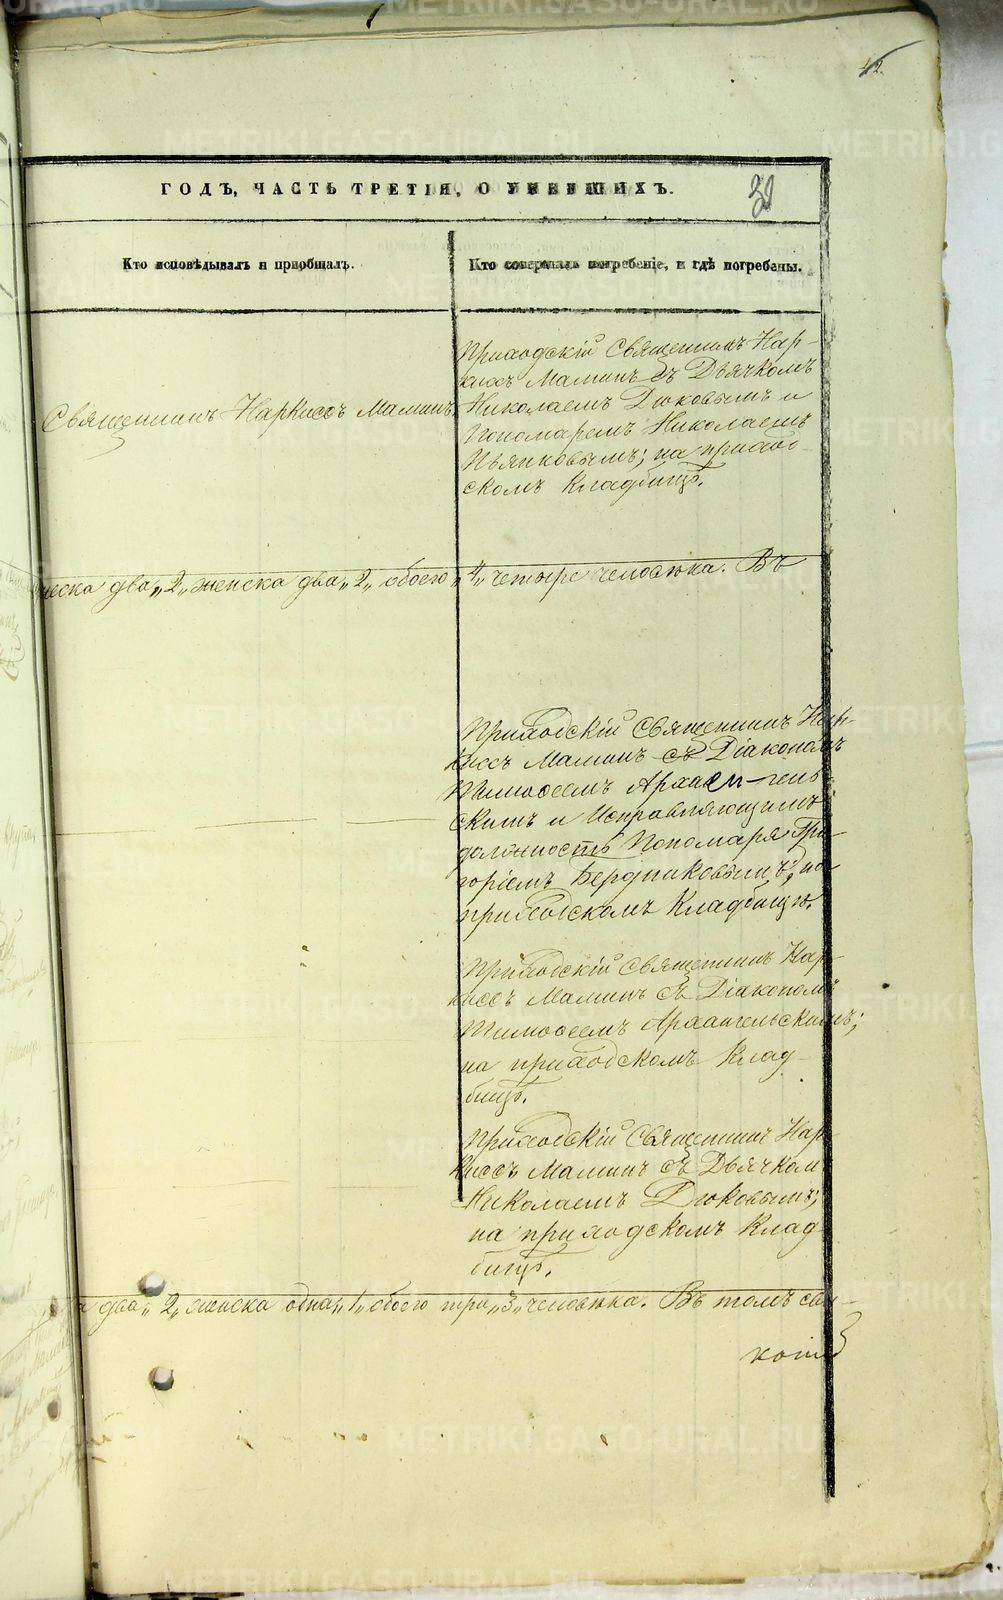 42.
ГОДЪ, ЧАСТЬ ТРЕТІЯ, О УМЕРШИХЪ.
Кто исповѣдывалъ и пріобщалъ.
Кто совершалъ погребеніе, и гдѣ погребены.
Священникъ Наркиссъ Маминъ
Приходскій Священникъ Нар-
киссъ Маминъ съ Дьячкомъ
Николаемъ Дюковымъ и
Пономаремъ Николаемъ
Пьянковымъ; на приход-
скомъ кладбищѣ.
жеска два „2„ женска два „2„ обоего „4„ четыре человѣка. Въ
Приходскій Священникъ Нар-
киссъ Маминъ съ Діакономъ
Тимоѳеемъ Архангель-
скимъ и Исправляющимъ
должность Пономаря Гри-
горіемъ Бердниковымъ; на
приходскомъ Кладбищѣ.
Приходскій Священникъ Нар-
киссъ Маминъ съ Діакономъ
Тимоѳеемъ Архангельскимъ;
на приходскомъ Клад-
бищѣ.
Приходскій Священникъ Нар
киссъ Маминъ съ Дьячком
Николаемъ Дюковымъ;
на приходскомъ Клад
бищѣ.
два „2„ женска одна „1„ обоего три „3„ человѣка. Въ томъ сви-
METRIKI.GASO-URAL.RU